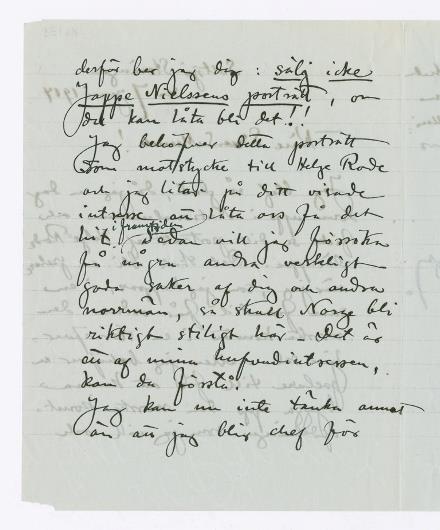 derför ber jag dig: sälj icke
Jappe Nielssens porträtt, om
du kan låta bli det!!
Jag behöfver detta porträtt
som motstycke till Helge Rode
och jag litar på ditt visade
intresse att låta oss få det
hit i framtiden. Sedan vill jag försöka
få några andra verkligt
goda saker af dig och andra
norrmän, så skall Norge bli
riktigt stiligt här – Det är
ett af mina hufvudintressen,
kan du förstå.
Jag kan nu inte tänka annat
än att jag blir chef för